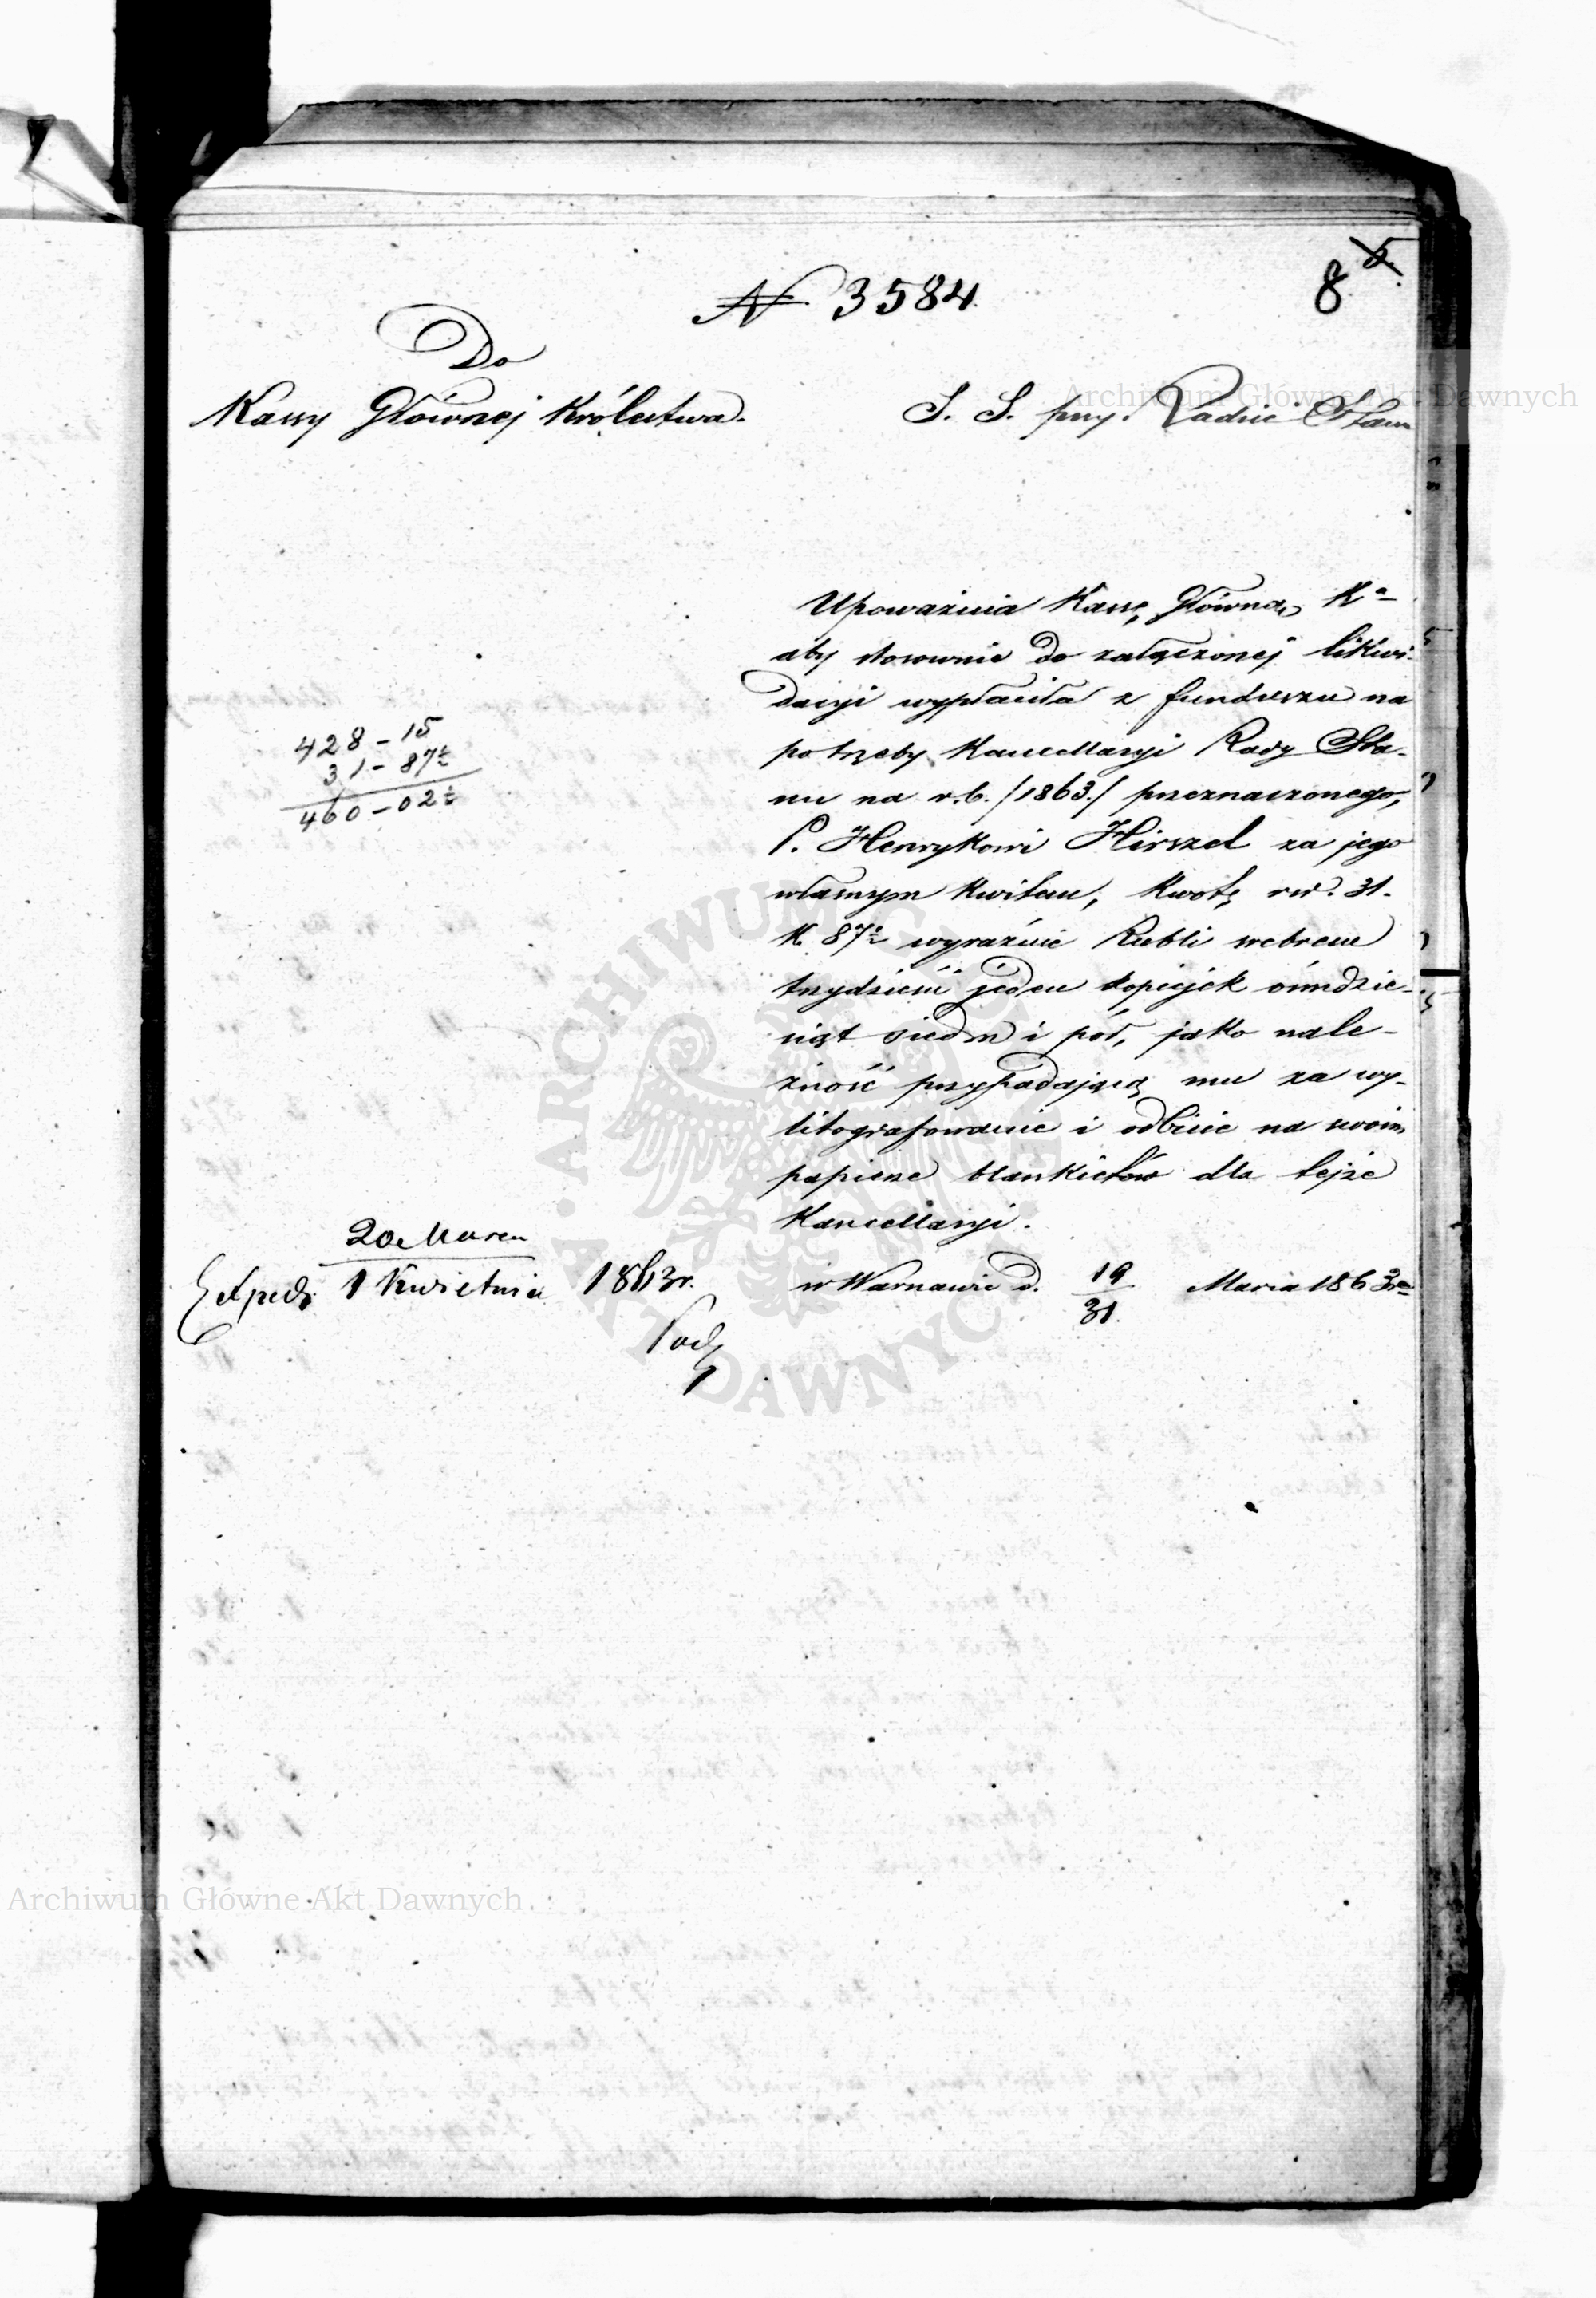 8 5.
N 3584.
Do
Kassy Głównej Królestwa.
S. S. przy Radzie Stanu
Upoważnia Kassę Główną Kª
aby stosownie do załączonej likwi-
dacyi wypłaciła z funduszu na
potrzeby Kancellaryi Rady Sta-
nu na r.b. /1863./ przeznaczonego,
P. Henrykowi Hirszel za jego
własnym kwitem, kwotę rsr. 31.
k. 87½ wyraźnie Rubli srebrem
trzydzieści jeden kopiejek ośmdzie-
siąt siedm i pół, jako nale-
żność przypadającą mu za wy-
litografowanie i odbicie na swoim
papierze blankietów dla tejże
Kancellaryi.
428 - 15
31 - 87½
460 - 02½
w Warszawie d. 19/31. Marca 1863 r.
20 Marca
Exped. 1 Kwietnia 1863 r.
Archiwum Główne Akt Dawnych
ARCHIWUM GŁÓWNE AKT DAWNYCH
Archiwum Główne Akt Dawnych